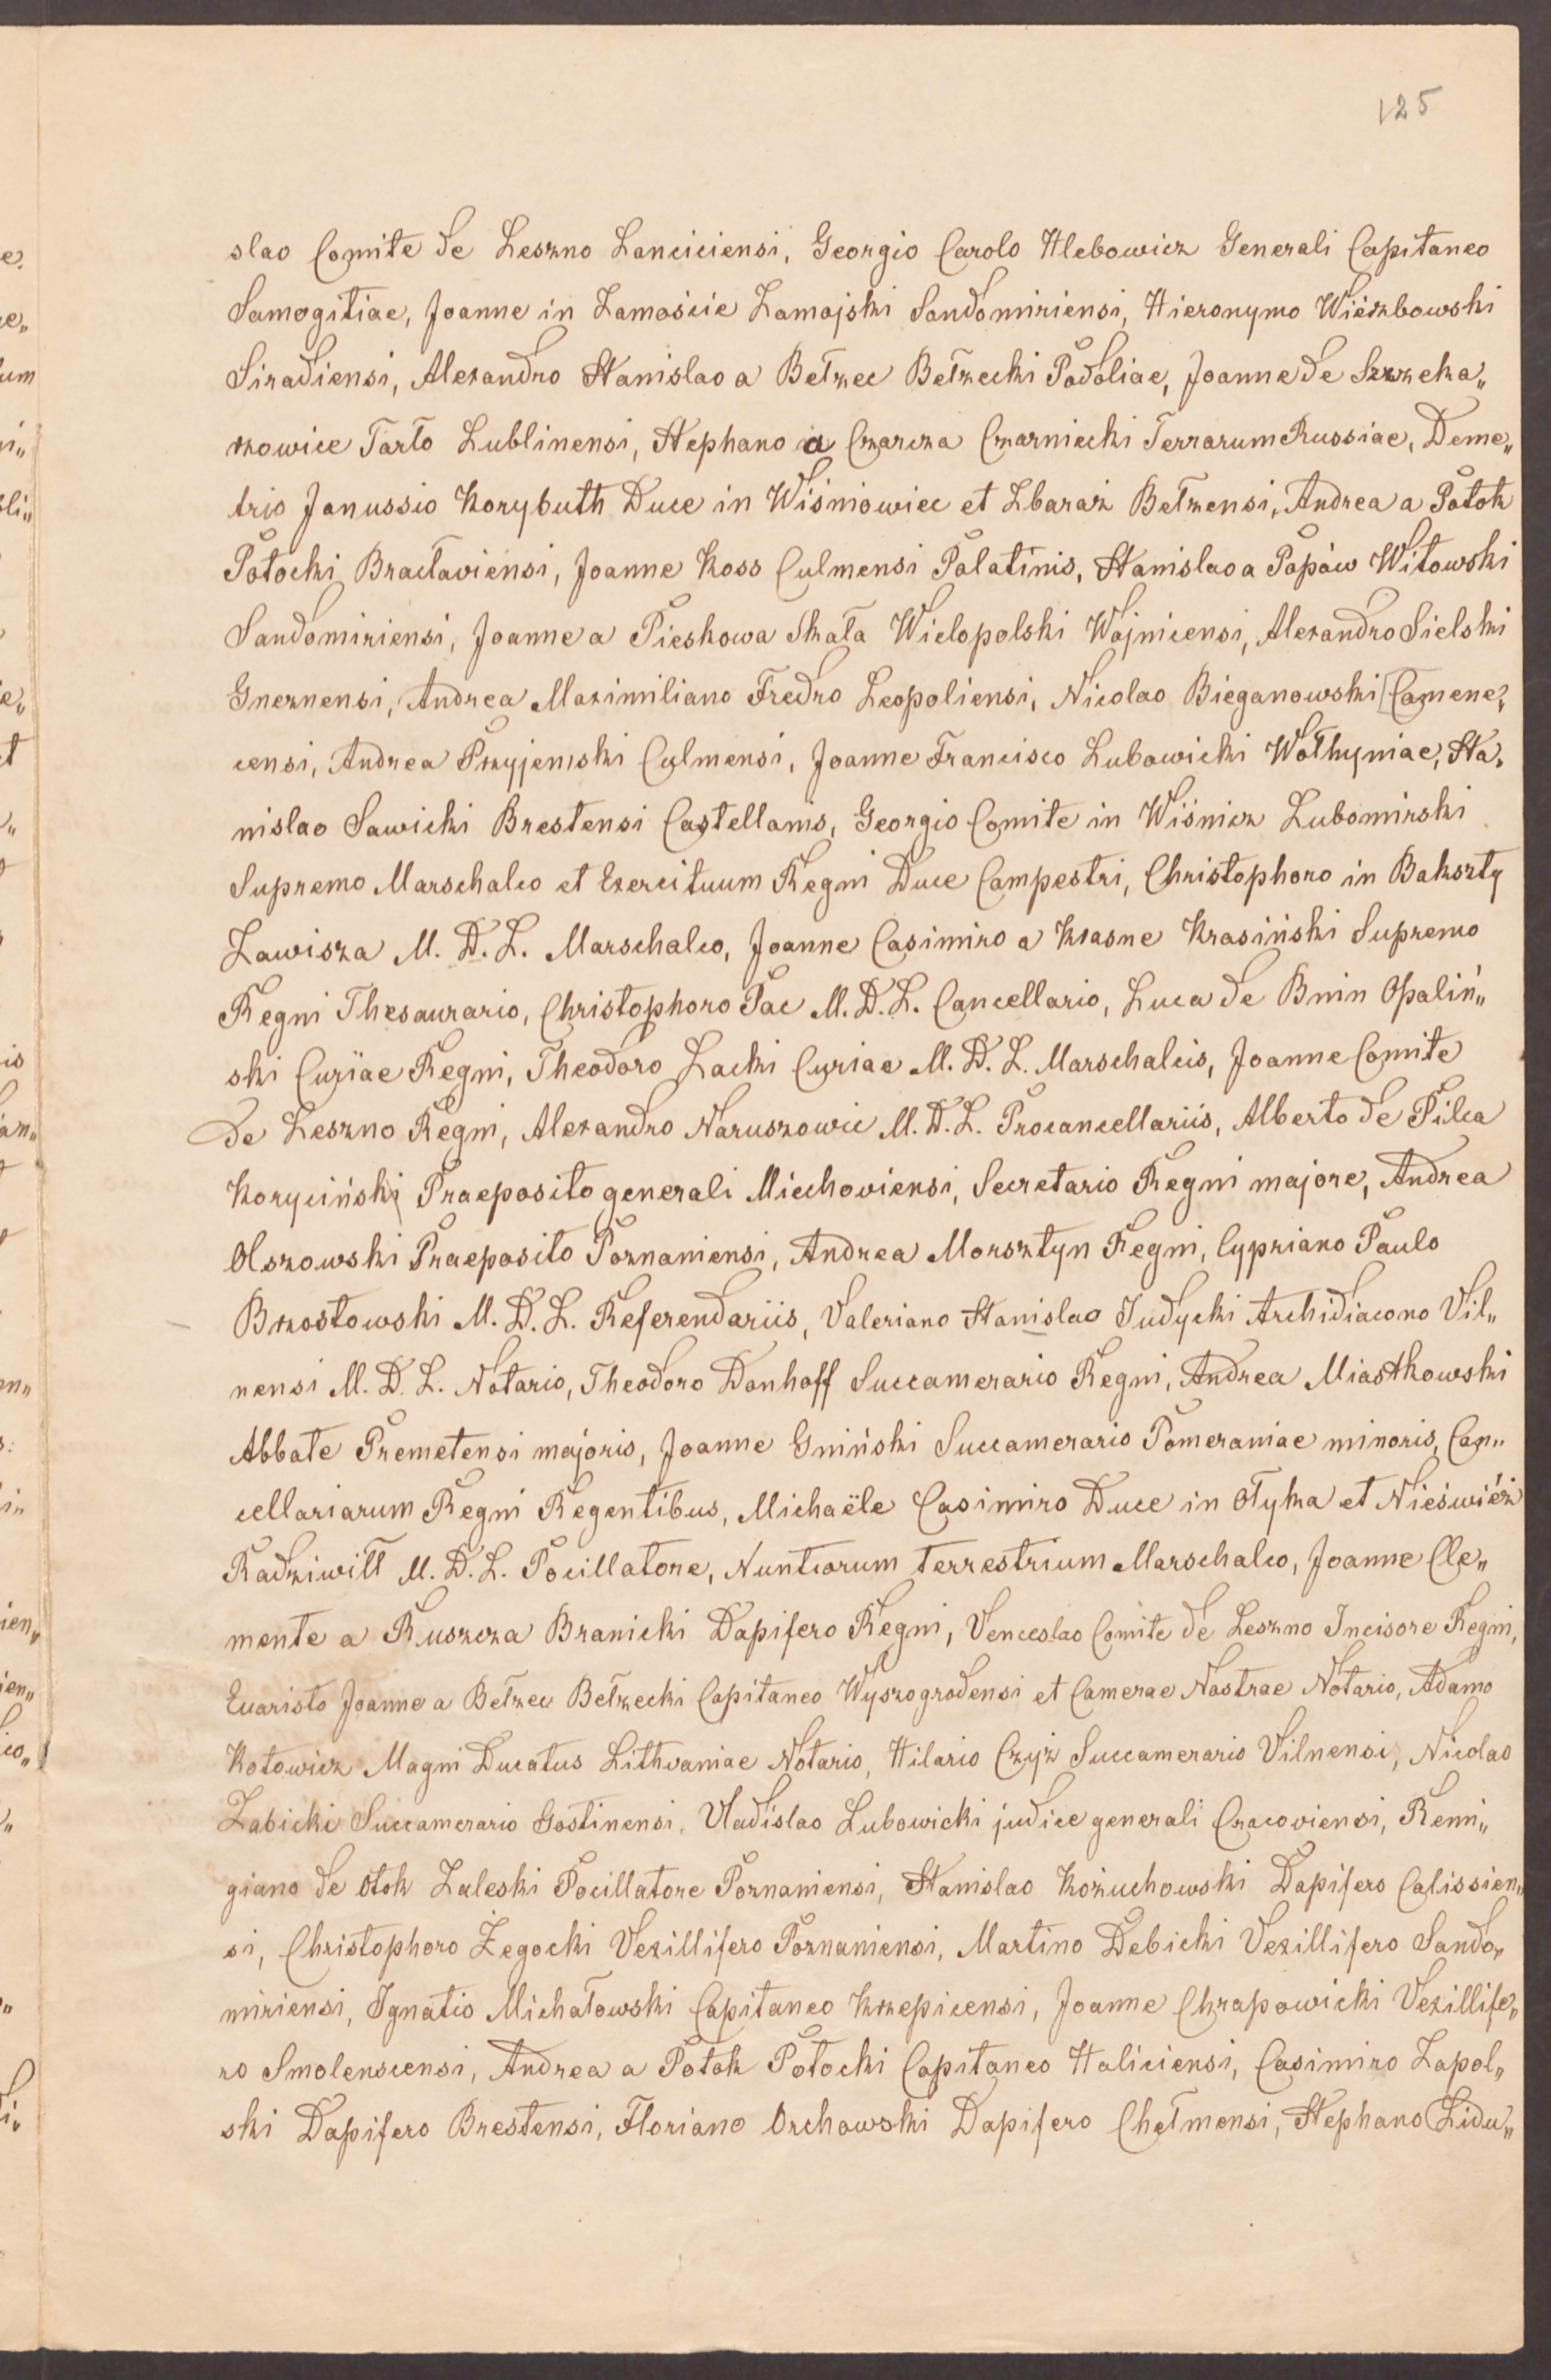 125
slao Comite de Leszno Lanciciensi, Georgio Carolo Hlebowicz Generali Capitaneo
Samogitiae, Joanne in Zamoście Zamojski Sandomiriensi, Hieronymo Wierzbowski
Siradiensi, Alexandro Stanislao a Bełzec Bełzecki Podoliae, Joanne de Szczeka„
rzowice Tarło Lublinensi, Stephano a Czarcza Czarniecki Terrarum Russiae, Deme„
trio Janussio Korybuth Duce in Wiśniowiec et Zbaraż Bełzensi, Andrea a Potok
Potocki Bracłaviensi, Joanne Koss Culmensi Palatinis, Stanislao a Popów Witowski
Sandomiriensi, Joanne a Pieskowa Skała Wielopolski Wojnicensi, Alexandro Sielski
Gneznensi, Andrea Maximiliano Fredro Leopoliensi, Nicolao Bieganowski Camene„
censi, Andrea Przyjemski Culmensi, Joanne Francisco Lubowicki Wołhyniae, Sta„
nislao Sawicki Brestensi Castellanis, Georgio Comite in Wiśnicz Lubomirski
Supremo Marschalco et Exercituum Regni Duce Campestri, Christophoro in Bakszty
Zawisza M. D. L. Marschalco, Joanne Casimiro a Krasne Krasiński Supremo
Regni Thesaurario, Christophoro Pac M. D. L. Cancellario, Luca de Bnin Opaliń„
ski Curiae Regni, Theodoro Lacki Curiae M. D. L. Marschalcis, Joanne Comite
de Leszno Regni, Alexandro Naruszowic M. D. L. Procancellariis, Alberto de Pilca
Koryciński Praeposito generali Miechoviensi, Secretario Regni majore, Andrea
Olszowski Praeposito Poznaniensi, Andrea Morsztyn Regni, Cypriano Paulo
Brzostowski M. D. L. Referendariis, Valeriano Stanislao Judycki Archidiacono Vil„
nensi M. D. L. Notario, Theodoro Donhoff Succamerario Regni, Andrea Miastkowski
Abbate Premetensi majoris, Joanne Gniński Succamerario Pomeraniae minoris, Can„
cellariarum Regni Regentibus, Michaële Casimiro Duce in Ołyka et Nieśwież
Radziwiłł M. D. L. Pocillatore, Nuntiorum terrestrium Marschalco, Joanne Cle„
mente a Ruszcza Branicki Dapifero Regni, Venceslao Comite de Leszno Incisore Regni,
Evaristo Joanne a Bełzec Bełzecki Capitaneo Wyszogrodensi et Camerae Nostrae Notario, Adamo
Kotowicz Magni Ducatus Lithvaniae Notario, Hilario Czyż Succamerario Vilnensi, Nicolao
Zabicki Succamerario Gostinensi, Vladislao Lubowicki judice generali Cracoviensi, Remi„
giano de Otok Zaleski Pocillatore Poznaniensi, Stanislao Kożuchowski Dapifero Calissien„
si, Christophoro Żegocki Vexillifero Poznaniensi, Martino Debicki Vexillifero Sando„
miriensi, Ignatio Michałowski Capitaneo Krzepicensi, Joanne Chrapowicki Vexillife„
ro Smolenscensi, Andrea a Potok Potocki Capitaneo Haliciensi, Casimiro Zapol„
ski Dapifero Brestensi, Floriano Orchowski Dapifero Chełmensi, Stephano Lidu„